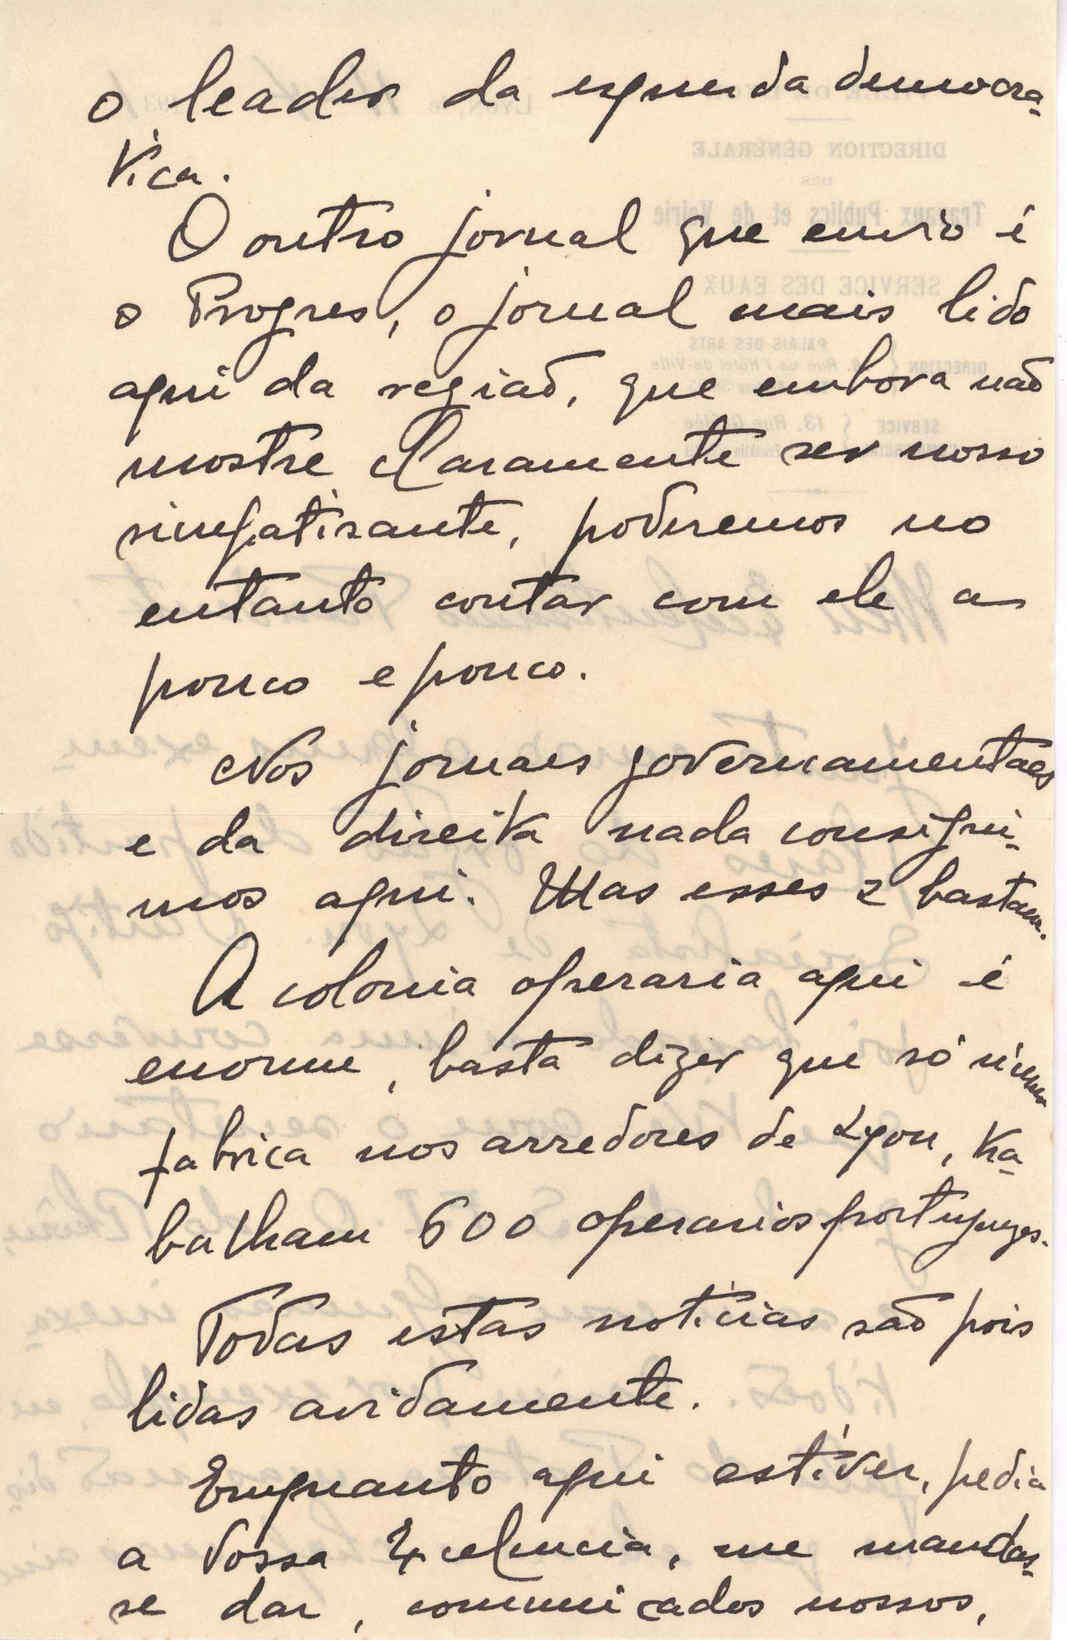 o leader da esquerda democra-
tica.
O outro jornal que envio é
o Progres, o jornal mais lido
aqui da região, que embora não
mostre claramente ser nosso
simpatisante, poderemos no
entanto contar com ele a
pouco e pouco.
Nos jornaes governamentaes
e da direita nada consegui-
mos aqui. Mas esses 2 bastam.
A colonia operaria aqui é
enorme, basta dizer que só n'uma
fabrica nos arredores de Lyon, tra-
balham 600 operarios portuguezes.
Todas estas noticias são pois
lidas avidamente.
Emquanto aqui estiver, pedia
a Vossa Excelencia, me mandas-
se dar, communicados nossos,
DIRECTION GÉNÉRALE
DES
Travaux Publics et de Voirie
SERVICE DES EAUX
PALAIS DES ARTS
DIRECTION
SERVICE